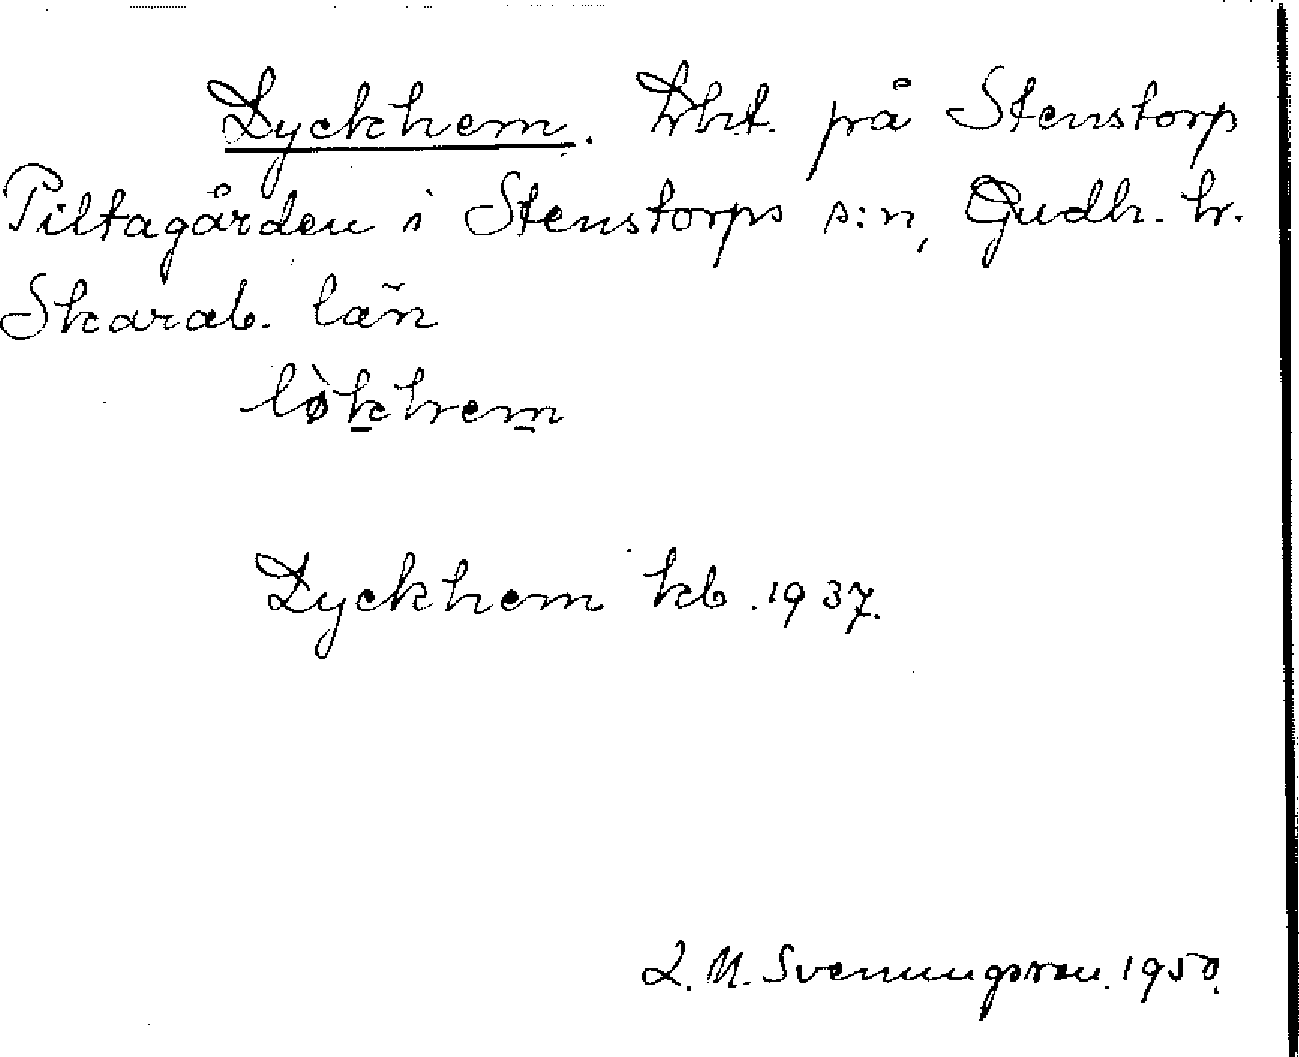 Lyckhem. Lht. på Stenstorp
Piltagården i Stenstorps s:n, Gudh. hr.
Skarab. län
lø̀khem
Lyckhem kb. 1937.
L. M. Svenungsson. 1950.